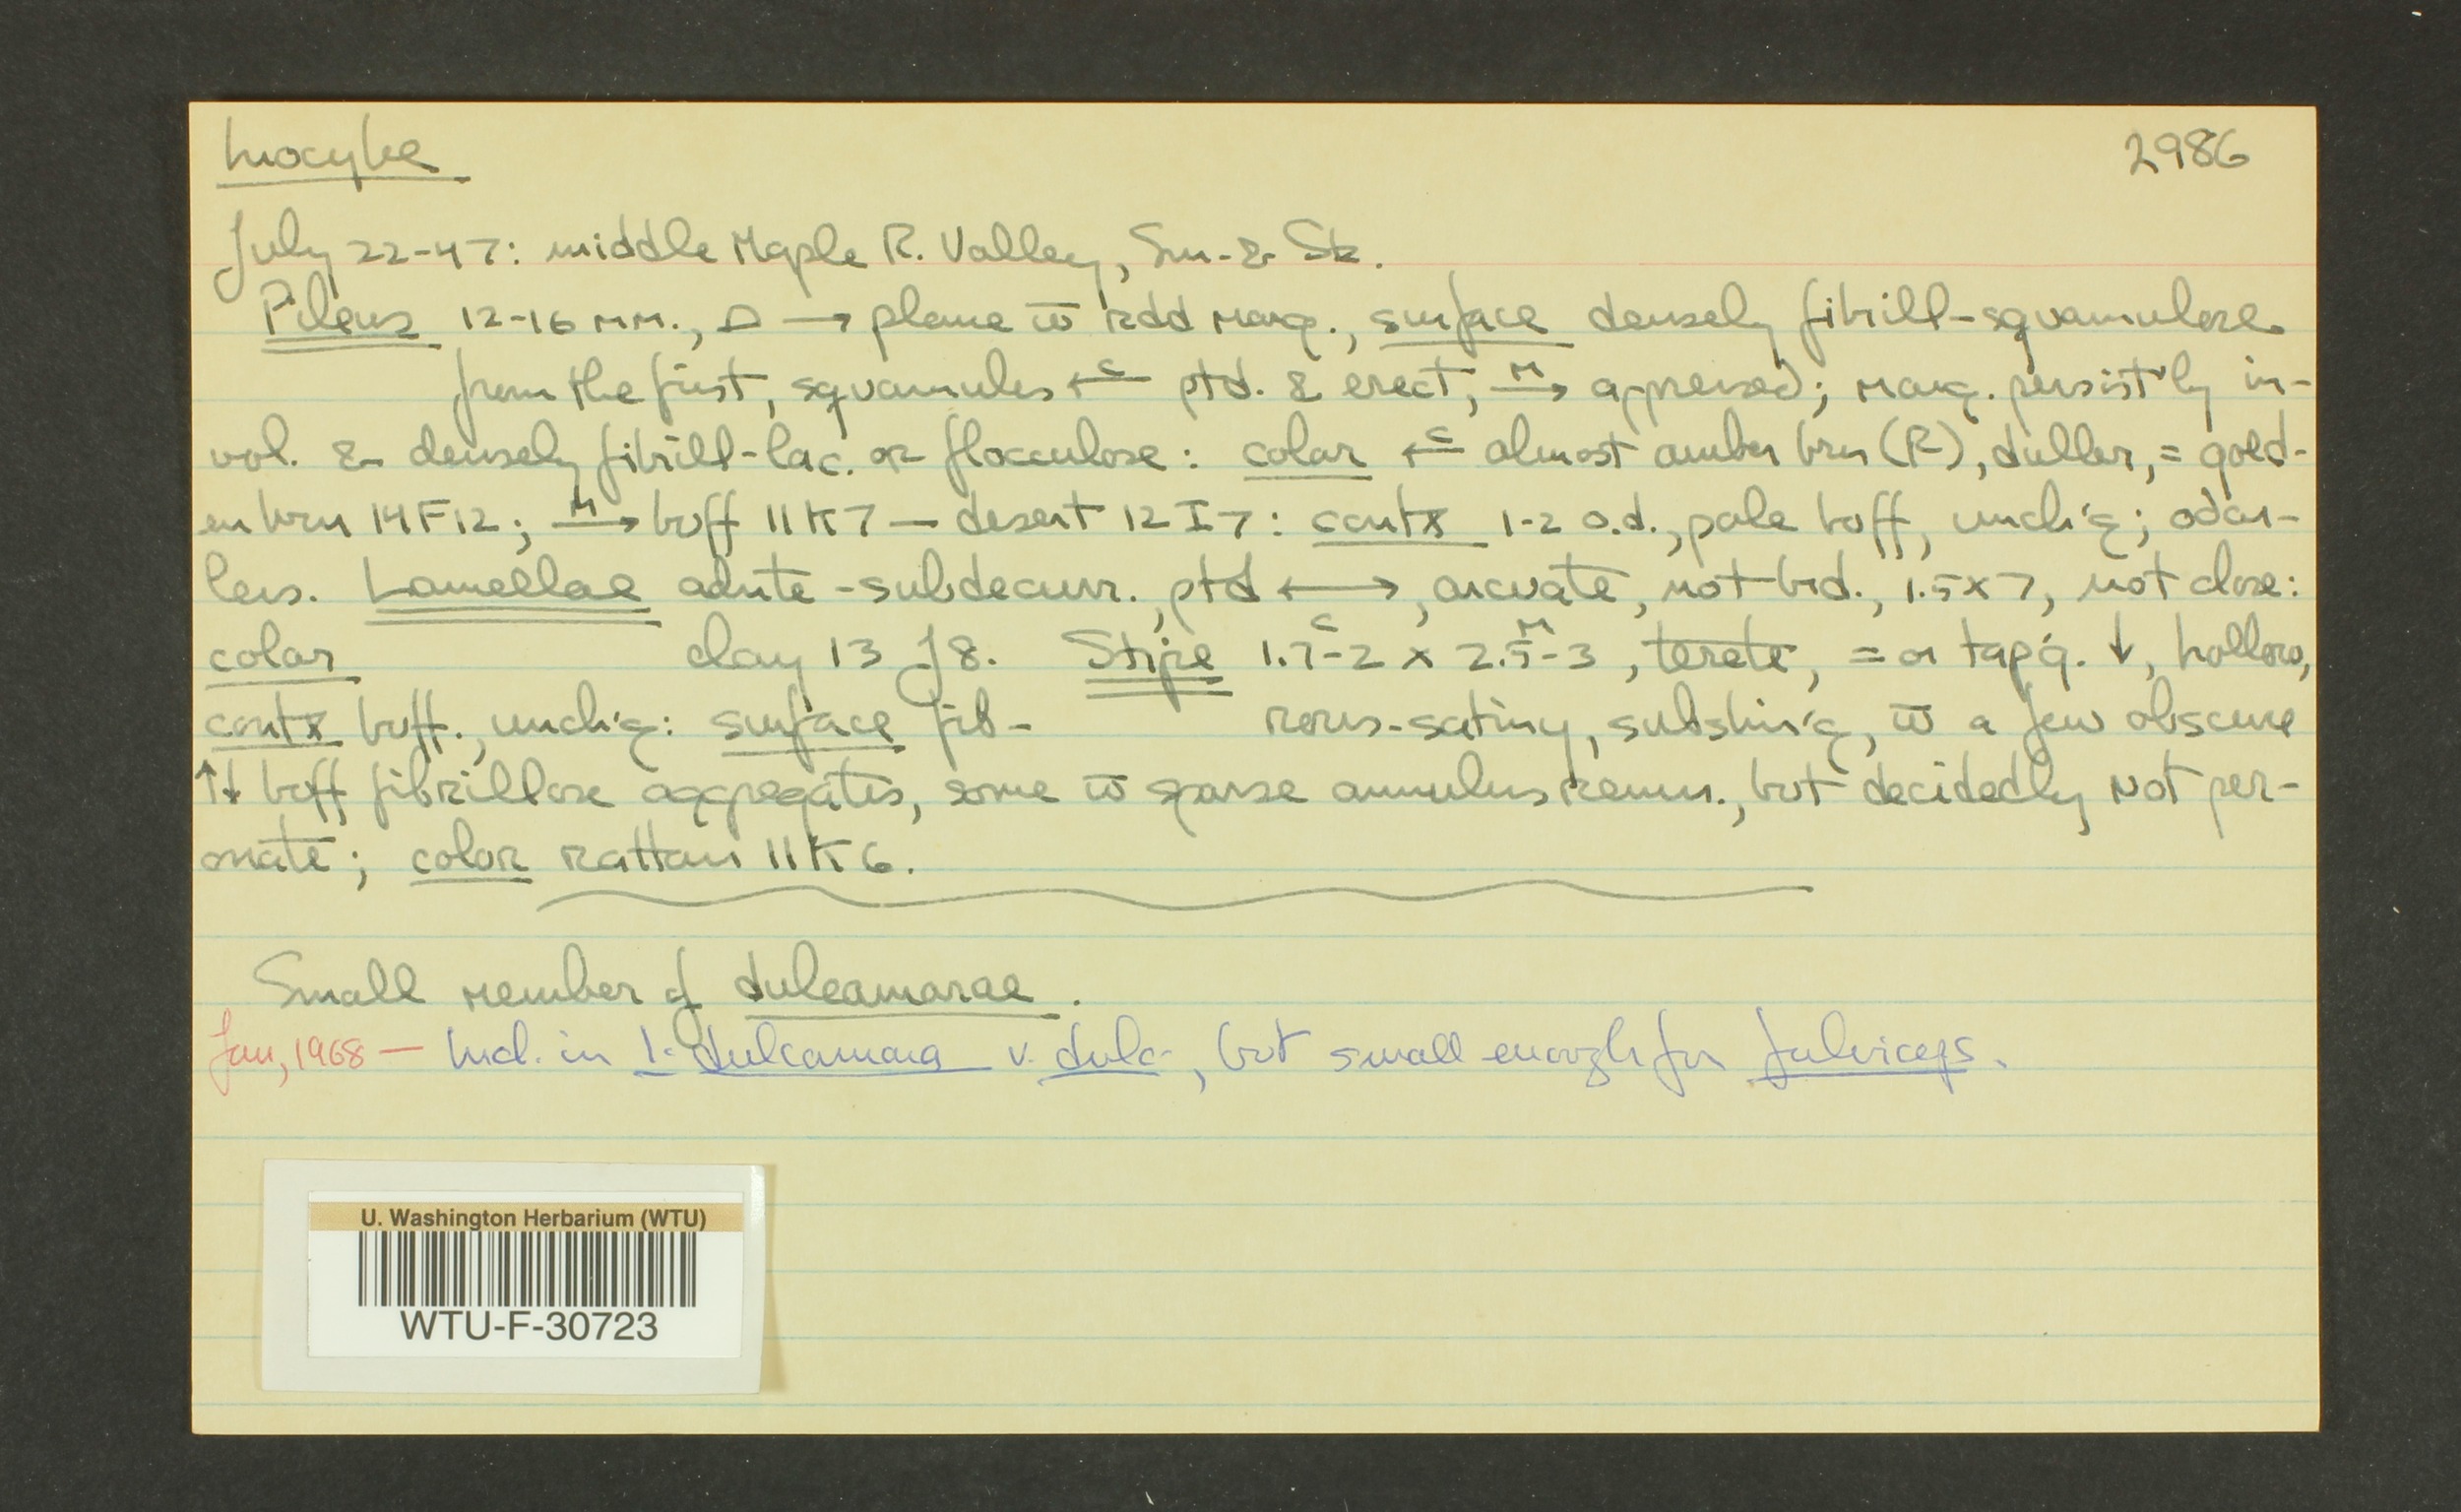 Inocybe 2986
July 22-47: middle Maple R. Valley, Sm. & St.
Pileus 12-16 mm., ⌓ → plane w̄ rdd marg., surface densely fibrill-squamulose
from the first, squamules ←c ptd. & erect, M→ appressed; marg. persist'ly in-
vol. & densely fibrill-lac. or flocculose: color ←c almost amber brn (R), duller, = gold-
en brn 14F12; M→ buff 11K7 — desert 12I7: contx 1-2 o.d., pale buff, unch'g; odor-
less. Lamellae adnte-subdecurr., ptd ⟷, arcuate, not brd., 1.5x7, not close:
color clay 13J8. Stipe 1.7-2 c x 2.5-3 M, terete, = or tap'g. ↓, hollow,
contx buff., unch'g: surface fib- rous-satiny, subshin'g, w̄ a few obscure
↑↓ buff fibrillose aggregates, some w̄ sparse annulus remn., but decidedly not per-
onate; color rattan 11K6.
Small member of dulcamarae.
Jan, 1968 — Incl. in I. dulcamara v. dulc-, but small enough for fulviceps.
U. Washington Herbarium (WTU)
WTU-F-30723